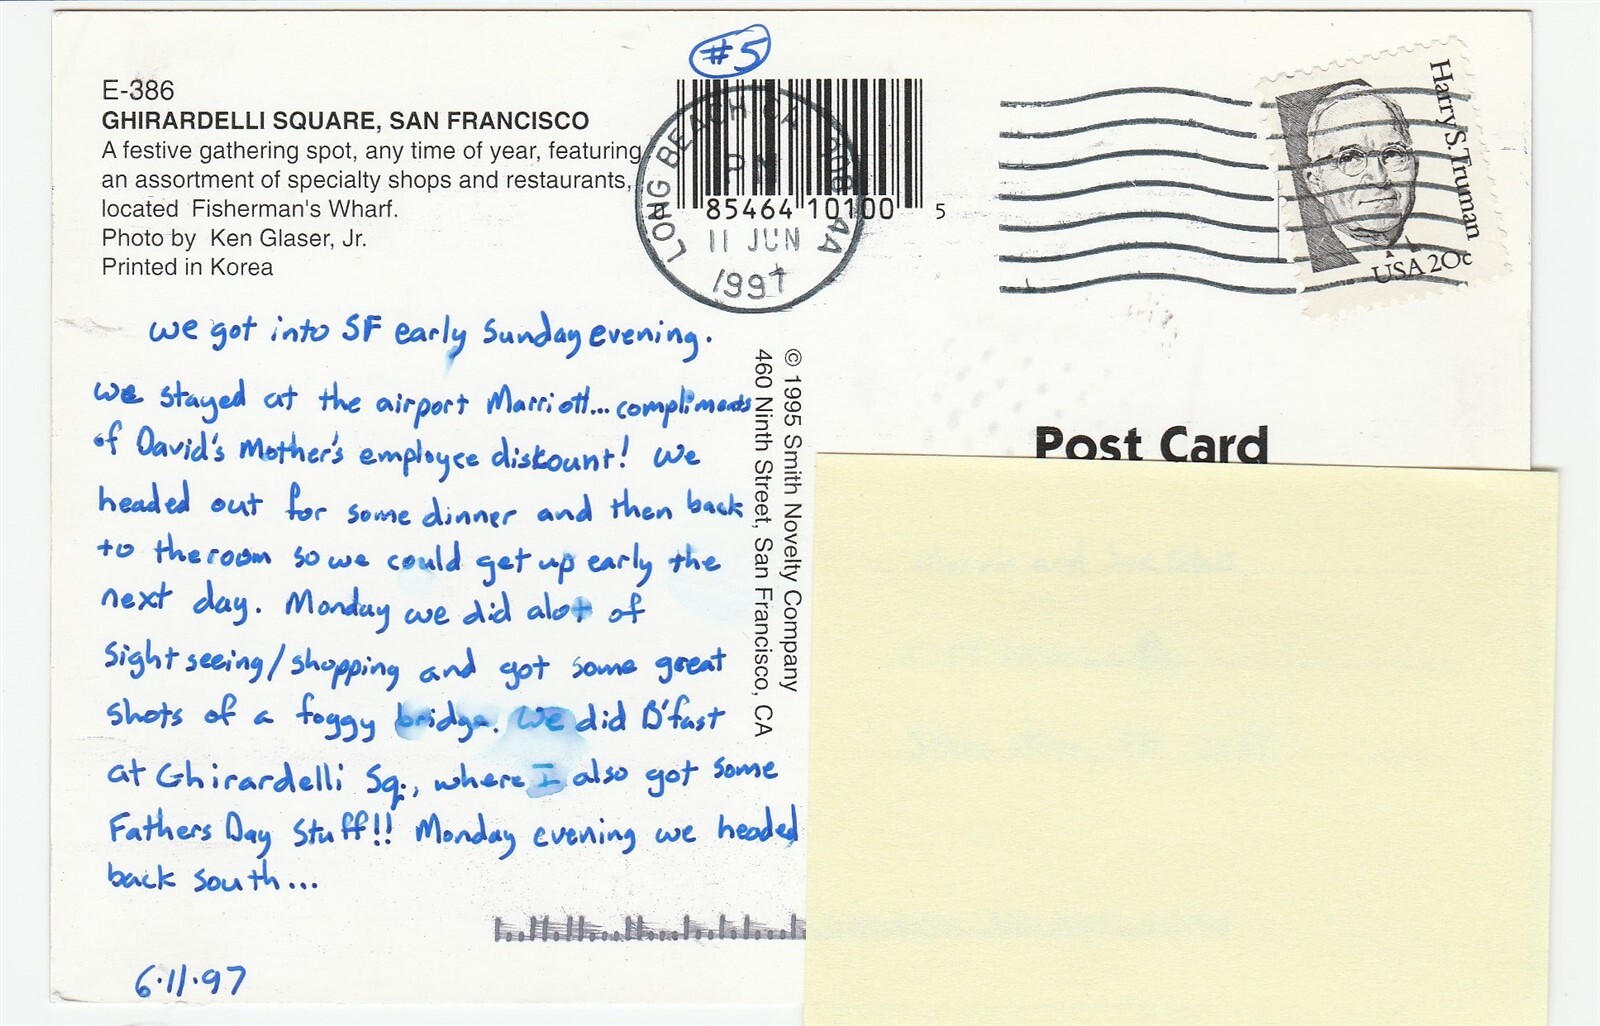 #5
E-386
GHIRARDELLI SQUARE, SAN FRANCISCO
A festive gathering spot, any time of year, featuring
an assortment of specialty shops and restaurants,
located Fisherman's Wharf.
Photo by Ken Glaser, Jr.
Printed in Korea
85464 10100 5
LONG BEACH CA
PM
11 JUN
1997
Harry S. Truman
USA 20c
we got into SF early Sunday evening.
We stayed at the airport Marriott... compliments
of David's Mother's employee diskount! We
headed out for some dinner and then back
to the room so we could get up early the
next day. Monday we did alot of
Sight seeing/shopping and got some great
shots of a foggy bridge. We did B'fast
at Ghirardelli Sq., where I also got some
Fathers Day Stuff!! Monday evening we headed
back south...
6.11.97
© 1995 Smith Novelty Company
460 Ninth Street, San Francisco, CA
Post Card